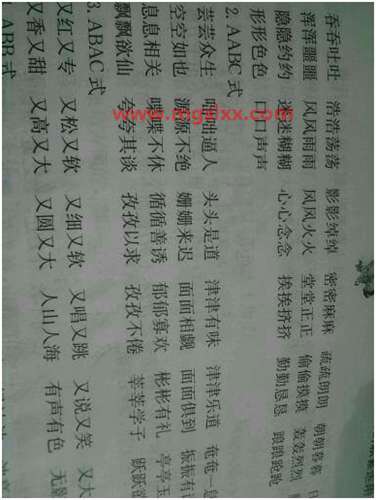 吞吞吐吐 浩浩荡荡 影影绰绰 密密麻麻 疏疏朗朗 朝朝暮暮
浑浑噩噩 风风雨雨 风风火火 堂堂正正 偷偷摸摸 轰轰烈烈
隐隐约约 迷迷糊糊 心心念念 挨挨挤挤 勤勤恳恳 踉踉跄跄
形形色色 口口声声
2. AABC 式
芸芸众生 咄咄逼人 头头是道 津津有味 津津乐道 奄奄一
空空如也 源源不绝 姗姗来迟 面面相觑 面面俱到 振振有
息息相关 喋喋不休 循循善诱 郁郁寡欢 彬彬有礼 亭亭玉
飘飘欲仙 夸夸其谈 孜孜以求 孜孜不倦 莘莘学子 跃跃欲
3. ABAC 式
又红又专 又松又软 又细又软 又唱又跳 又说又笑 又大
又香又甜 又高又大 又圆又大 人山人海 有声有色 无
4. ABB 式